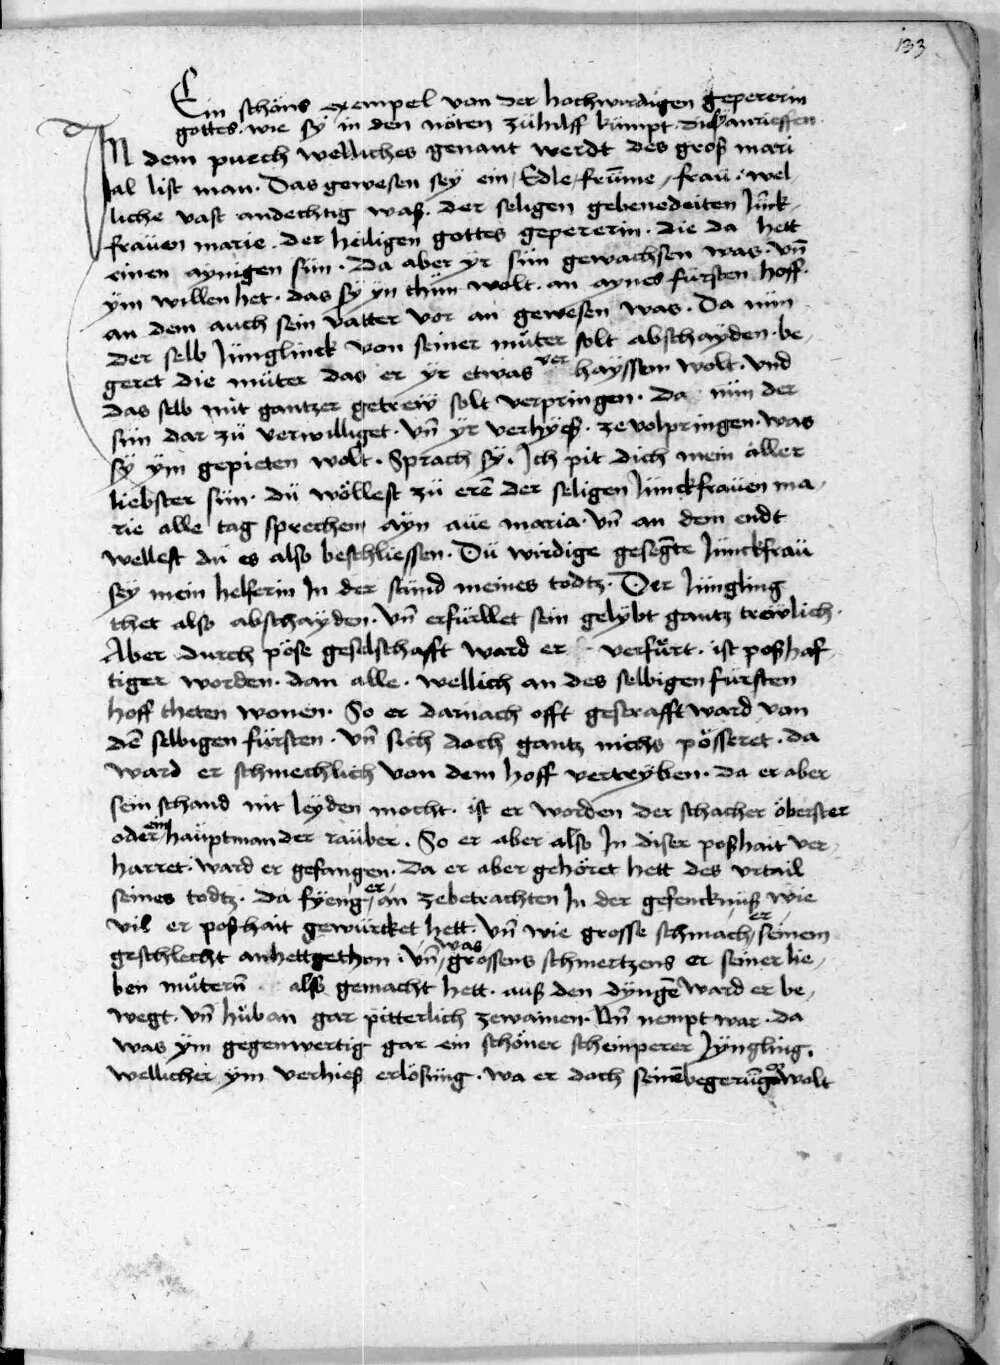 133
Ein schöns exempel von der hochwirdigen gepererin
gottes. wie sÿ in den nöten zühilff kümpt. die sÿ anrieffen.
IN dem puech welliches genant werdt des groß mari
al list man. Das gewesen seÿ ein, Edle, frūme, fraü. wel,
liche vast andechtig waß. der seligen gebenedeiten Jūck,
fraüen marie. der heiligen gottes gepererin. die da hett
einen aÿnigen sün. Da aber ÿr sün gewachsen was. vn̄
ÿm willen het. das sÿ ÿn thün wolt. an aÿnes fürsten hoff.
an dem auch sein vatter vor an gewesen was. Da nün
der selb Jünglinck von seiner müter solt abschaÿden. be,
geret die müter das er ÿr etwas ver haÿssen wolt. vnd
das selb mit gantzer getreẅ solt verpringen. Da nün der
sün dar zü verwilliget. vn̄ ÿr verhÿeß. ze volpringen. was
sÿ ÿm gepieten wolt. Sprach sÿ. Ich pit dich mein aller
liebster sün. dü wöllest zü erē der seligen Jünckfraüen ma,
rie alle tag sprechen aÿn aüe maria. vn̄ an dem endt
wellest dü es also beschliessen. Dü wirdige gesegēte Jünckfraü
seÿ mein helferin In der stünd meines todtz. Der Jüngling
thet also abschaÿden. vn̄ erfüllet sein gelÿbt gantz treẅlich.
Aber durch pöse geselschafft ward er verfürt. ist poßhaf,
tiger worden. dan alle. wellich an des selbigen fürsten
hoff theten wonen. So er darnach offt gestrafft ward von
dē selbigen fürsten. vn̄ sich doch gantz nichs pösseret. da
ward er schmechlich von dem hoff vertrÿben. da er aber
sein schand nit leÿden mocht. ist er worden der schacher öberster
oder ein haüptman der raüber. So er aber also In diser poßhait ver,
harret. ward er gefangen. Da er aber gehöret hett des vrtail
seines todtz. da fÿeng, er, an zebetrachten In der gefencknüß wie
vil er poßhait gewürcket hett. vn̄ wie grosse schmach, er, seinem
geschlecht an hett gethon. vn̄, was grossens schmertzens er seiner lie,
ben mütern̄ also gemacht hett. auß den dÿngē ward er be,
wegt. vn̄ hüb an gar pitterlich zewainen. Vn̄ nempt war. da
was ÿm gegenwertig gar ein schöner scheinperer Jÿngling.
wellicher ÿm verhieß erlösüng. wa er doch seinē begerūgē wolt